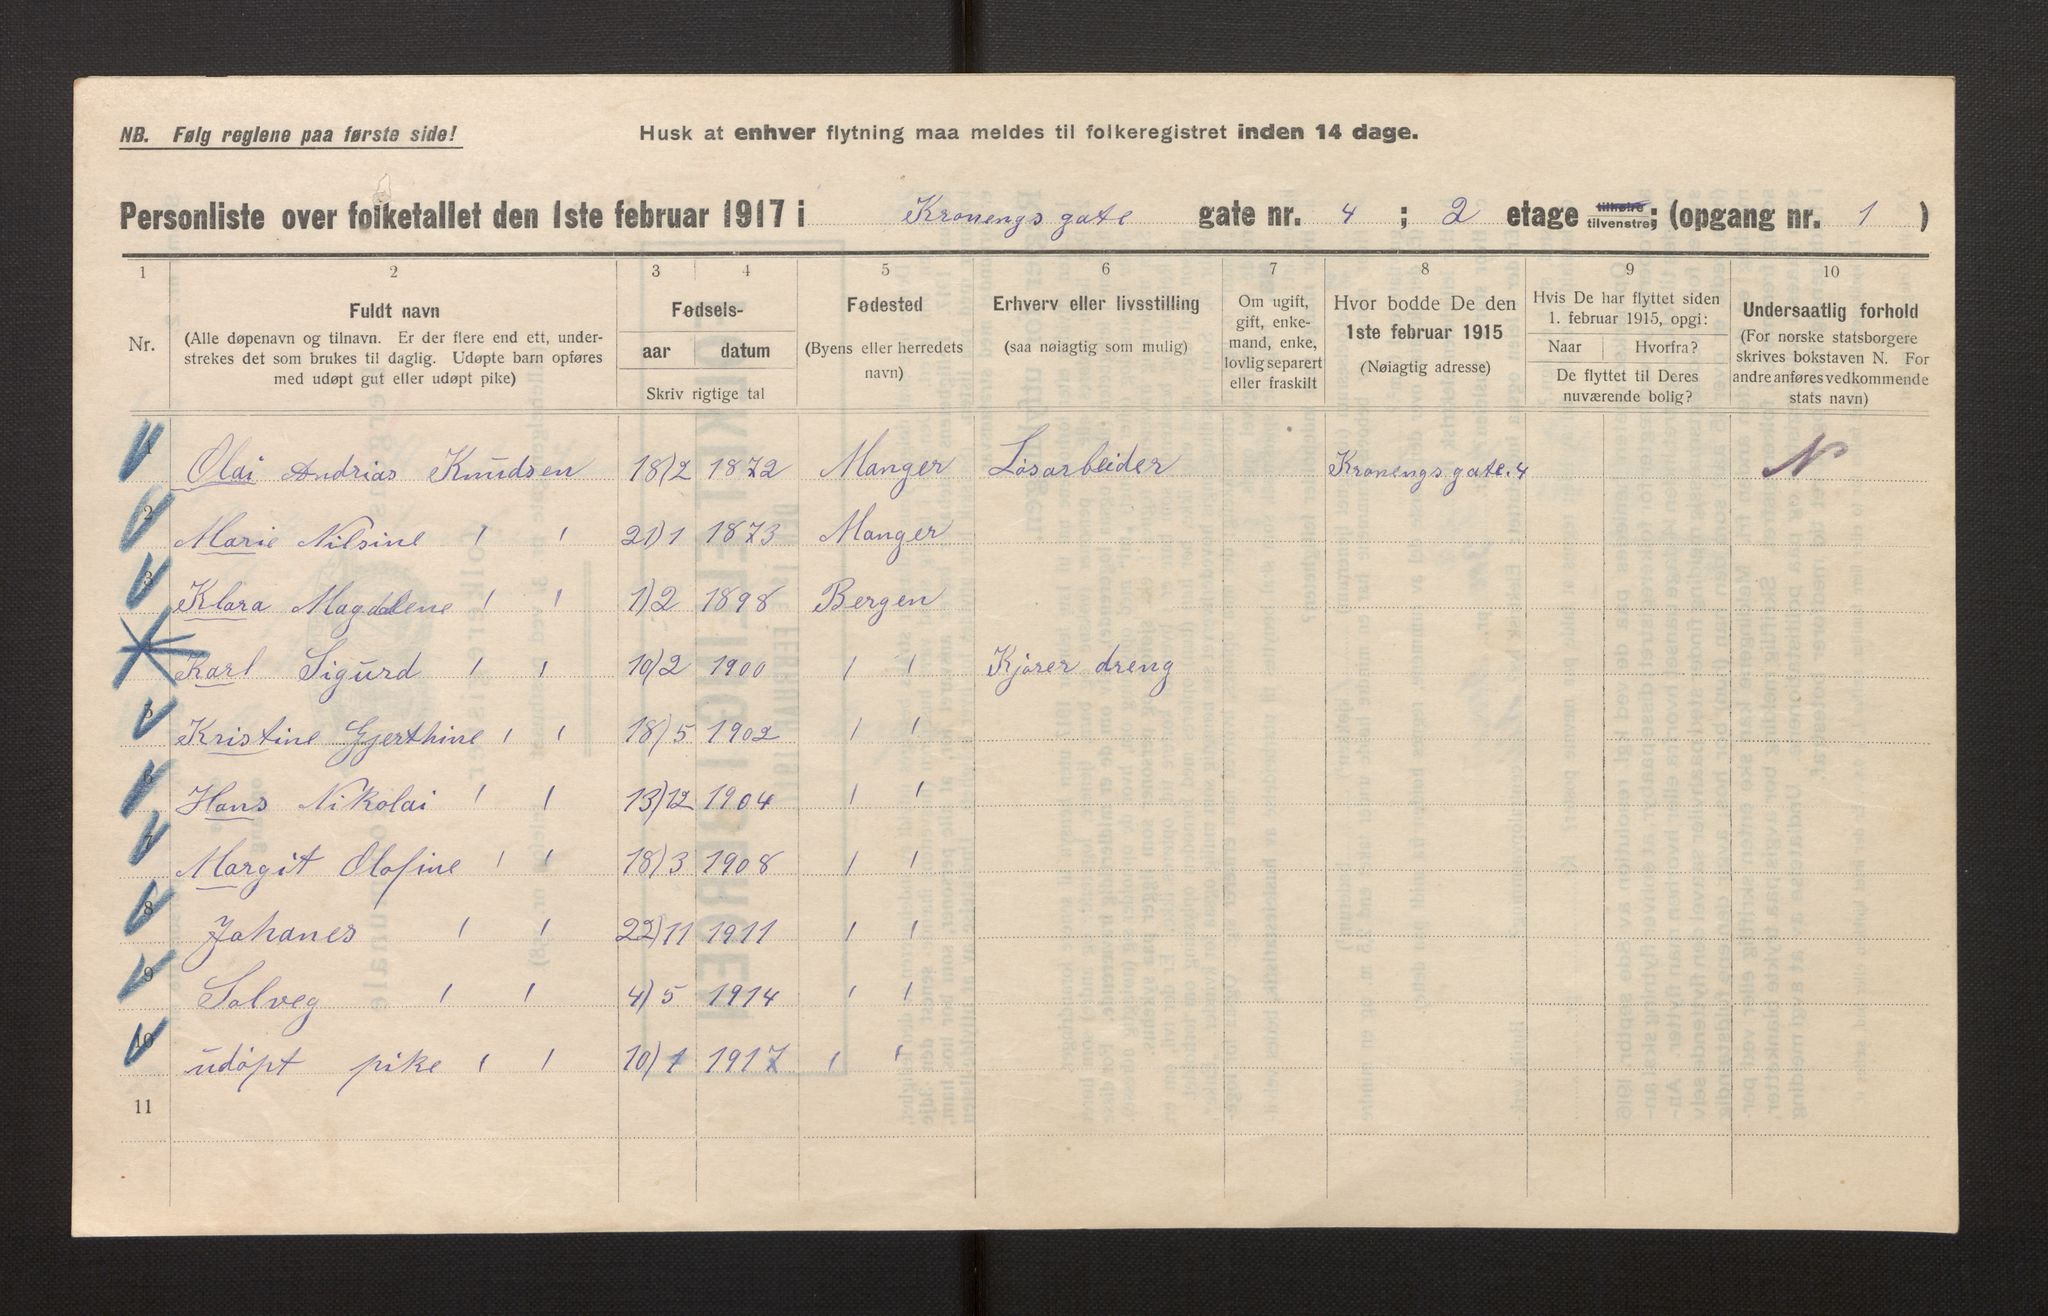 NB. Følg reglene paa første side!
Husk at enhver flytning maa meldes til folkeregistret inden 14 dage.
Personliste over folketallet den 1ste februar 1917 i Kronengs gate gate nr. 4 ; 2 etage tilhøire tilvenstre; (opgang nr. 1 )
1 2 3 4 5 6 7 8 9 10
Nr.
Fuldt navn
(Alle døpenavn og tilnavn. Er der flere end ett, under-
strekes det som brukes til daglig. Udøpte barn opføres
med udøpt gut eller udøpt pike)
Fødsels-
aar datum
Skriv rigtige tal
Fødested
(Byens eller herredets
navn)
Erhverv eller livsstilling
(saa nøiagtig som mulig)
Om ugift,
gift, enke-
mand, enke,
lovlig separert
eller fraskilt
Hvor bodde De den
1ste februar 1915
(Nøiagtig adresse)
Hvis De har flyttet siden
1. februar 1915, opgi:
Naar Hvorfra?
De flyttet til Deres
nuværende bolig?
Undersaatlig forhold
(For norske statsborgere
skrives bokstaven N. For
andre anføres vedkommende
stats navn)
1 Olai Andrias Knudsen 18)2 1872 Manger Løsarbeider Kronengs gate. 4 N
2 Marie Nilsine " 21)1 1873 Manger
3 Klara Magdalene " 1)2 1898 Bergen
Karl Sigurd " 10)2 1900 " Kjører dreng
5 Kristine Gjerthine " 18)5 1902 "
6 Hans Nikolai " 13)12 1904 "
7 Margit Olofine " 18)3 1908 "
8 Johanes " 22)11 1911 "
9 Solveg " 4)5 1914 "
10 udøpt pike " 10)1 1917 "
11